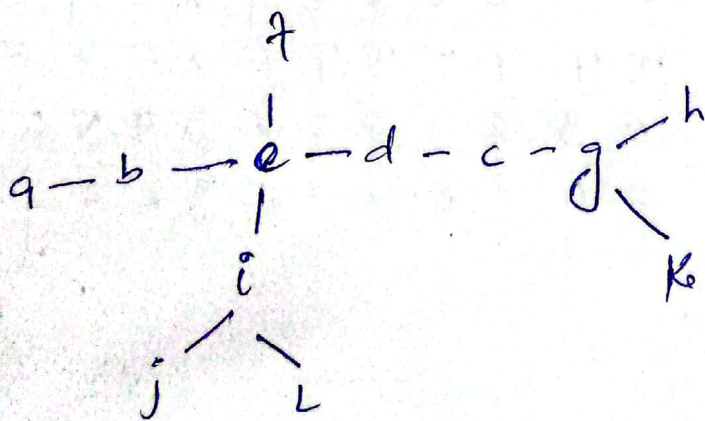 f
a — b — e — d - c - g — h
i k
j L